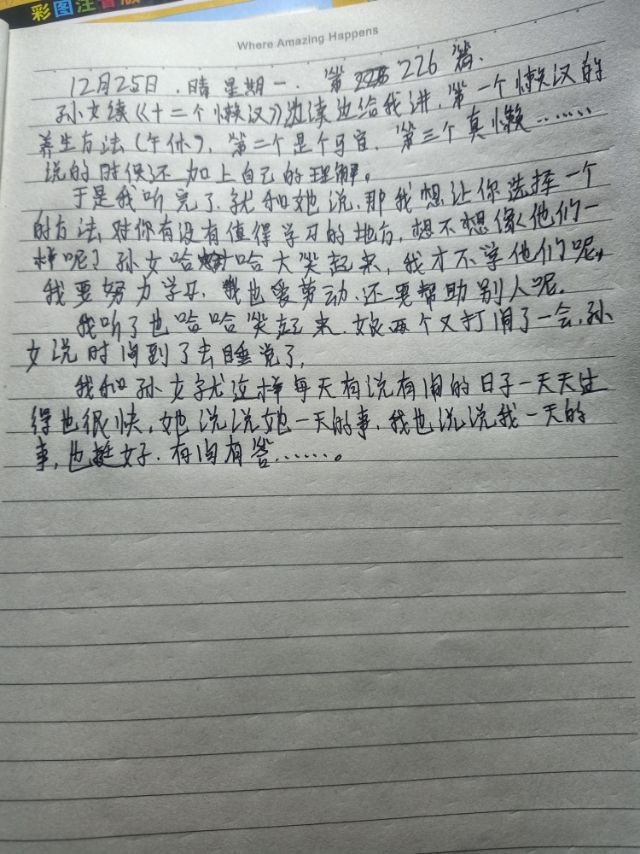 彩图注音版
Where Amazing Happens
12月25日.晴 星期一. 第226篇.
孙女续《十二个懒汉》边读边给我讲.第一个懒汉的
养生方法(午休),第二个是个马官.第三个真懒……
说的时候还加上自己的理解。
于是我听完了.就和她说.那我想让你选择一个
的方法,对你有没有值得学习的地方,想不想像他们一
样呢?孙女哈哈大笑起来,我才不学他们呢,
我要努力学习.我也爱劳动.还要帮助别人呢.
我听了也哈哈笑起来.女说两个又打闹了一会,孙
女说时间到了去睡觉了,
我和孙女就这样每天有说有闹的日子一天天过
得也很快,她说说她一天的事.我也说说我一天的
事,也挺好.有问有答……。